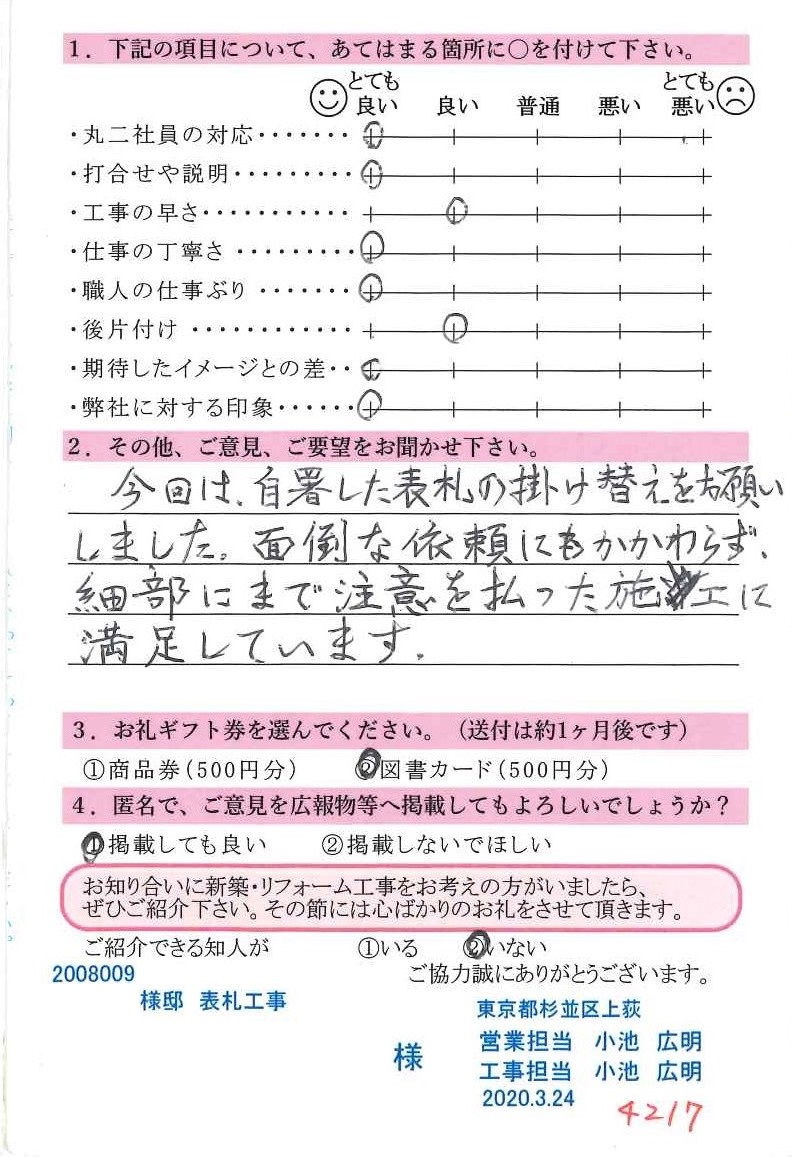 1．下記の項目について、あてはまる箇所に○を付けて下さい。
とても良い 良い 普通 悪い とても悪い
・丸二社員の対応・・・・・・・
・打合せや説明・・・・・・・・・
・工事の早さ・・・・・・・・・・・
・仕事の丁寧さ・・・・・・・・・
・職人の仕事ぶり・・・・・・・
・後片付け・・・・・・・・・・・・
・期待したイメージとの差・・
・弊社に対する印象・・・・・・
2．その他、ご意見、ご要望をお聞かせ下さい。
今回は、自署した表札の掛け替えをお願い
しました。面倒な依頼にもかかわらず、
細部にまで注意を払った施工に
満足しています。
3．お礼ギフト券を選んでください。（送付は約1ヶ月後です）
①商品券(500円分) ②図書カード(500円分)
4．匿名で、ご意見を広報物等へ掲載してもよろしいでしょうか？
①掲載しても良い ②掲載しないでほしい
お知り合いに新築・リフォーム工事をお考えの方がいましたら、
ぜひご紹介下さい。その節には心ばかりのお礼をさせて頂きます。
ご紹介できる知人が ①いる ②いない
2008009 ご協力誠にありがとうございます。
様邸 表札工事
東京都杉並区上荻
様 営業担当 小池 広明
工事担当 小池 広明
2020.3.24
4217